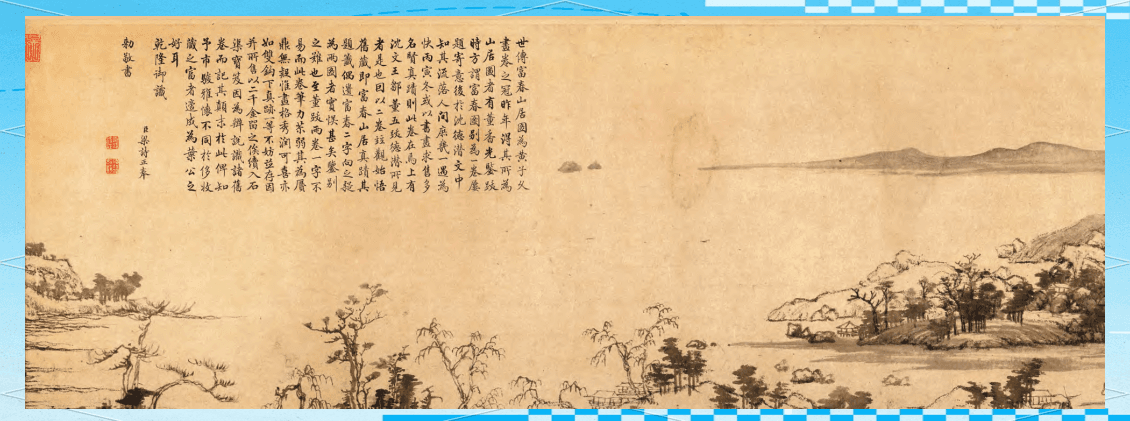 世傳富春山居圖為黃子久
畫卷之冠昨年得其所為
山居圖者有董香光鑒跋
時方謂富春圖別為一卷屢
題寄意後於沈德潛文中
知其流落人間庶幾一遇為
快丙寅冬或以書畫求售多
名賢真蹟則此卷在焉上有
沈文王鄒董五跋德潛所見
者是也因以二卷並觀始悟
舊藏即富春山居真蹟其
題籤偶遺富春二字向之疑
為兩圖者實悞甚矣鑒別
之難也至董跋兩卷一字不
易而此卷筆力苶弱其為贗
鼎無疑惟畫格秀潤可喜亦
如雙鉤下真蹟一等不妨並存因
并所售以二千金留之俟續入石
渠寶笈因為辨說識諸舊
卷而記其顛末於此俾知
予市駿雅懷不同於侈收
藏之富者適成為葉公之
好耳
乾隆御識
臣梁詩正奉
勅敬書